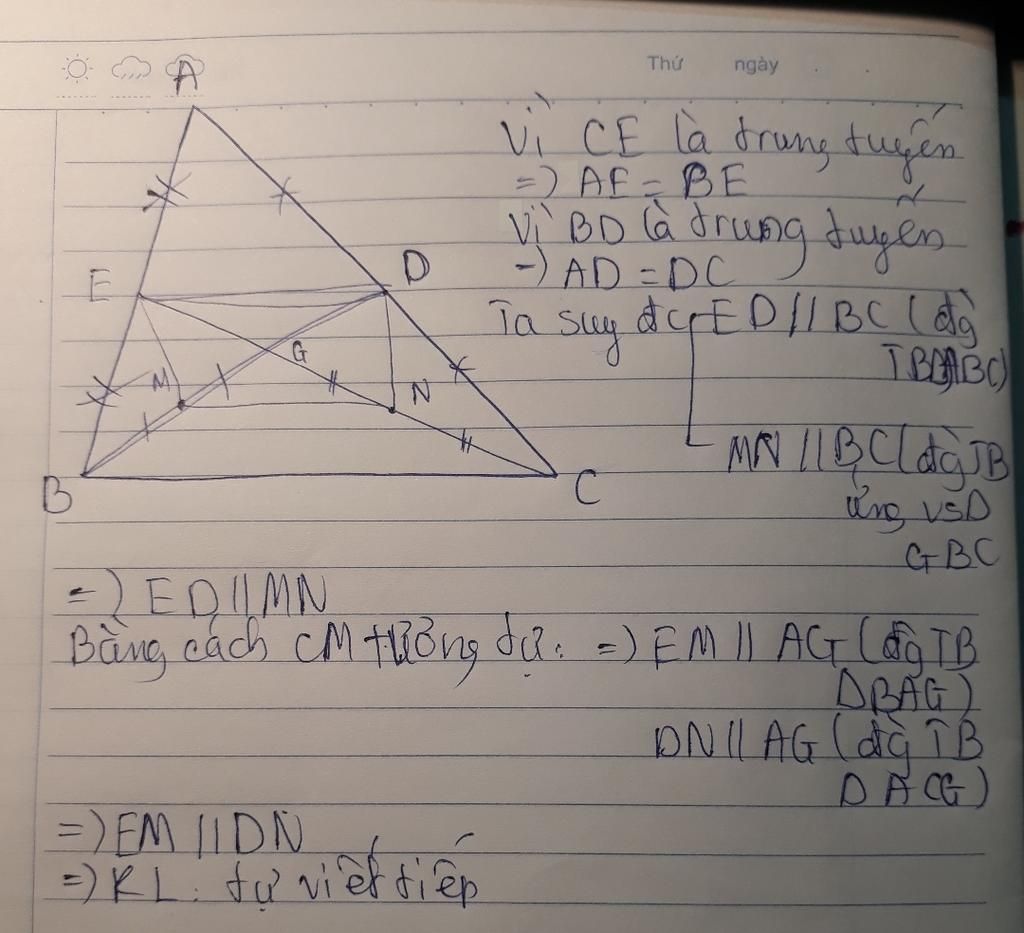 Thứ ngày
A
Vì CE là trung tuyến
=) AE = BE
Vì BD là trung tuyến
=) AD = DC
E
D
Ta suy đc ED // BC (đg
TB ABC)
G
M
N
MN // BC (đg TB
ứng vs D
GBC
B
C
=) ED // MN
Bằng cách CM tương tự: =) EM // AG (đg TB
D BAG)
DN // AG (đg TB
D ACG)
=) EM // DN
=) KL: tự viết tiếp